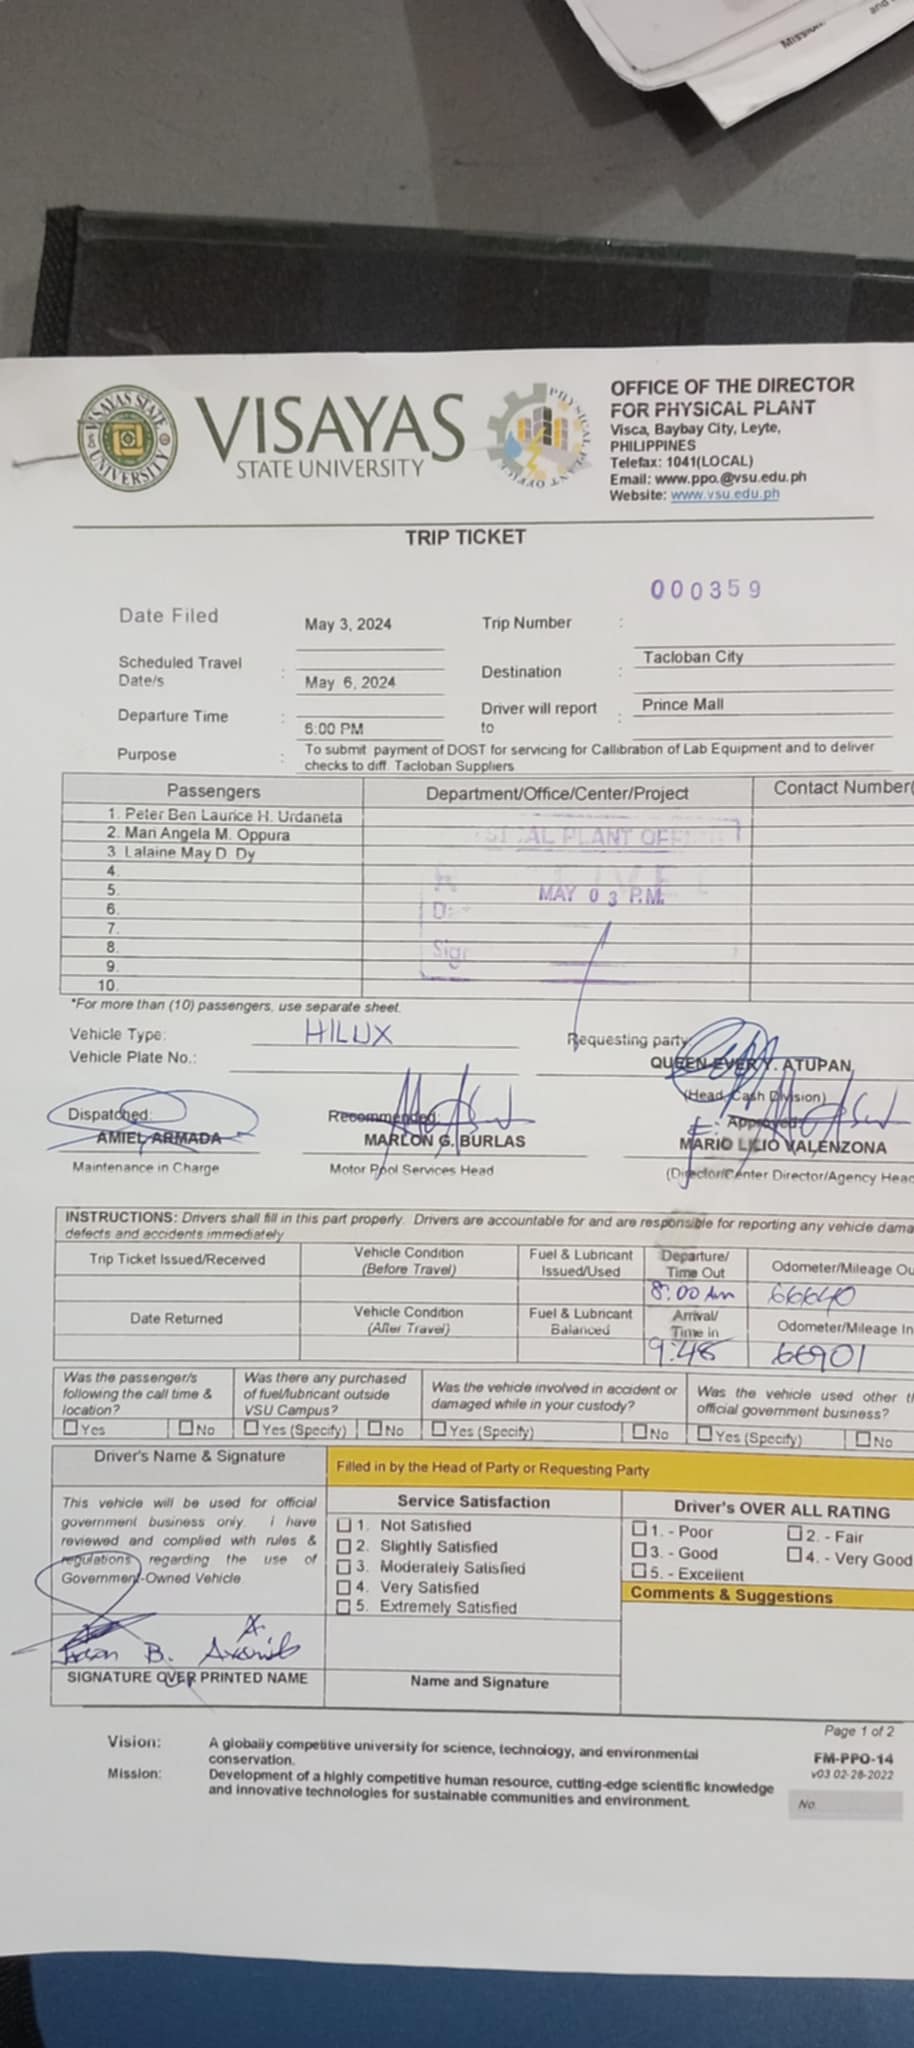 Mission
and
VISAYAS
STATE UNIVERSITY
VISAYAS STATE UNIVERSITY
OFFICE OF THE DIRECTOR
FOR PHYSICAL PLANT
Visca, Baybay City, Leyte,
PHILIPPINES
Telefax: 1041(LOCAL)
Email: www.ppo.@vsu.edu.ph
Website: www.vsu.edu.ph
TRIP TICKET
000359
Date Filed May 3, 2024 Trip Number :
Scheduled Travel Date/s : May 6, 2024 Destination : Tacloban City
Departure Time : 6:00 PM Driver will report to : Prince Mall
Purpose : To submit payment of DOST for servicing for Callibration of Lab Equipment and to deliver
checks to diff. Tacloban Suppliers
Passengers Department/Office/Center/Project Contact Number(
1. Peter Ben Laurice H. Urdaneta
2. Mari Angela M. Oppura
3 Lalaine May D. Dy
4.
5.
6.
7.
8.
9.
10.
AL PLANT OFF
MAY 03 P.M.
D:
Sig
*For more than (10) passengers, use separate sheet.
Vehicle Type: HILUX
Vehicle Plate No.:
Requesting party:
QUEEN-EVER Y. ATUPAN
(Head, Cash Division)
Dispatched: Recommended: Approved:
AMIEL ARMADA MARLON G. BURLAS MARIO LILIO VALENZONA
Maintenance in Charge Motor Pool Services Head (Director/Center Director/Agency Head
INSTRUCTIONS: Drivers shall fill in this part properly. Drivers are accountable for and are responsible for reporting any vehicle dama
defects and accidents immediately
Trip Ticket Issued/Received Vehicle Condition (Before Travel) Fuel & Lubricant Issued/Used Departure/ Time Out Odometer/Mileage Ou
8:00 Am 66640
Date Returned Vehicle Condition (After Travel) Fuel & Lubricant Balanced Arrival/ Time in Odometer/Mileage In
9:48 66901
Was the passenger/s following the call time & location? Was there any purchased of fuel/lubricant outside VSU Campus? Was the vehicle involved in accident or damaged while in your custody? Was the vehicle used other th official government business?
Yes No Yes (Specify) No Yes (Specify) No Yes (Specify) No
Driver's Name & Signature
Filled in by the Head of Party or Requesting Party
This vehicle will be used for official
government business only. I have
reviewed and complied with rules &
regulations regarding the use of
Government-Owned Vehicle.
Service Satisfaction
1. Not Satisfied
2. Slightly Satisfied
3. Moderately Satisfied
4. Very Satisfied
5. Extremely Satisfied
Driver's OVER ALL RATING
1. - Poor 2. - Fair
3. - Good 4. - Very Good
5. - Excellent
Comments & Suggestions
B.
SIGNATURE OVER PRINTED NAME
Name and Signature
Page 1 of 2
Vision: A globally competitive university for science, technology, and environmental
conservation.
Mission: Development of a highly competitive human resource, cutting-edge scientific knowledge
and innovative technologies for sustainable communities and environment.
FM-PPO-14
v03 02-28-2022
No.